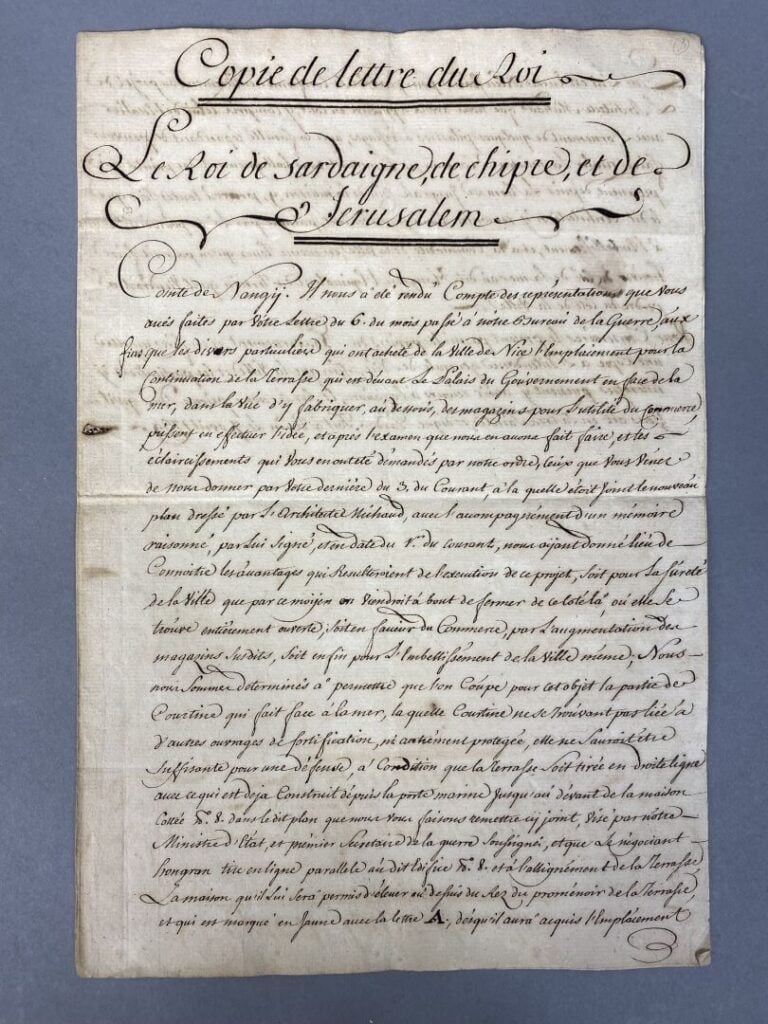 Copie de lettre du Roi
Le Roi de sardaigne, de chipre, et de
Jerusalem
Comte de Nangij. Il nous a été rendu Compte des représentations que Vous
avés faites par Votre Lettre du 6. du mois passé à nôtre Bureau de la Guerre, aux
fins que les divers particuliers qui ont acheté de la Ville de Nice l'Emplacement pour la
Continuation de la Terrasse qui est dévant Le Palais du Gouvernement en face de la
mer, dans la Vüe d'y fabriquer, au dessous, des magazins pour L'utilité du Commerce
puissent en effectuer l'idée, et après l'examen que nous en avons fait faire, et les
éclaircissements qui Vous en ont été démandés par notre ordre, Ceux que Vous Venéz
de nous donner par Votre dernière du 3. du Courant, à la quelle étoit joint le nouveau
plan dressé par L'Architecte Michaud, avec l'accompagnément d'un mémoire
raisonné, par Lui Signé, et en date du 1.er du courant, nous aijant donné lieu de
Connoitre les avantages qui Resulteroient de l'execution de ce projet, soit pour La Sûreté
de la Ville que par ce moijen on Viendroit à bout de fermer de ce coté là, où elle Se
trouve entièrement ouverte, soit en faveur du Commerce, par L'augmentation des
magazins Susdits, soit enfin pour L'Embellissement de la Ville même, Nous
nous Sommes determinés à permettre que l'on Coupe pour cet objet la partie de
Courtine qui fait face à la mer, la quelle Courtine ne se trouvant pas liée à
d'autres ouvrages de fortification, ni autrément protegée, elle ne Sauroit être
Suffisante pour une défense, à Condition que la Terrasse Soit tirée en droite ligne
avec ce qui est deja Construit dépuis la porte marine Jusqu'au dévant de la maison
Cottée N.° 8. dans le dit plan que nous Vous faisons remettre cij joint, Visé par notre
Ministre d'Etat, et prémier Sécrétaire de la guerre Soussigné, et que Le négociant
hongran tire en ligne parallele au dit Edifice N.° 8. et à l'allignément de la Terrasse
La maison qu'il Lui Sera permis d'élever au dessus du Rez du proménoir de la Terrasse,
et qui est marqué en Jaune avec la lettre A, dès qu'il aura acquis l'Emplacement